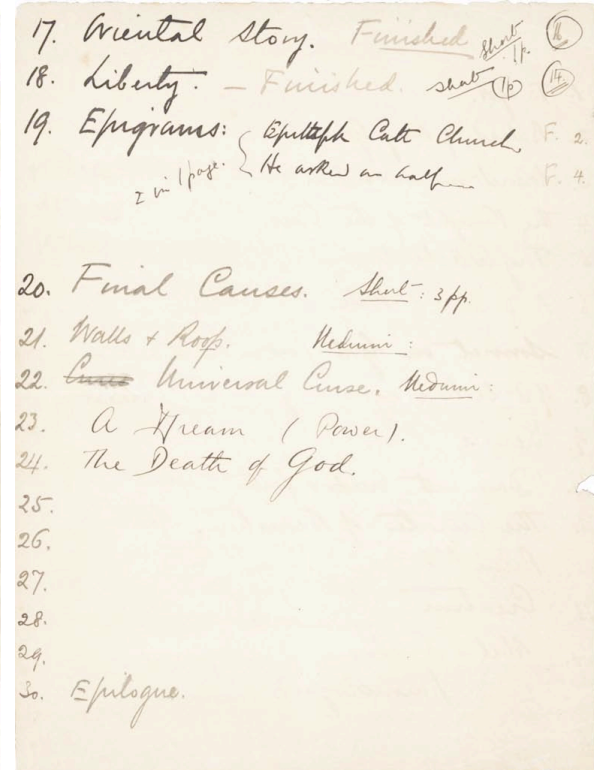 17. Oriental Story. Finished short 1p. 11.
18. Liberty. — Finished. short (1p) 14.
19. Epigrams: Epitaph Cath Church F. 2.
2 in 1 page. He asked an half F. 4.
20. Final Causes. Short: 3 pp.
21. Walls + Roofs. Medium:
22. Universal Curse. Medium:
23. A Dream (Power).
24. The Death of God.
25.
26.
27.
28.
29.
30. Epilogue.